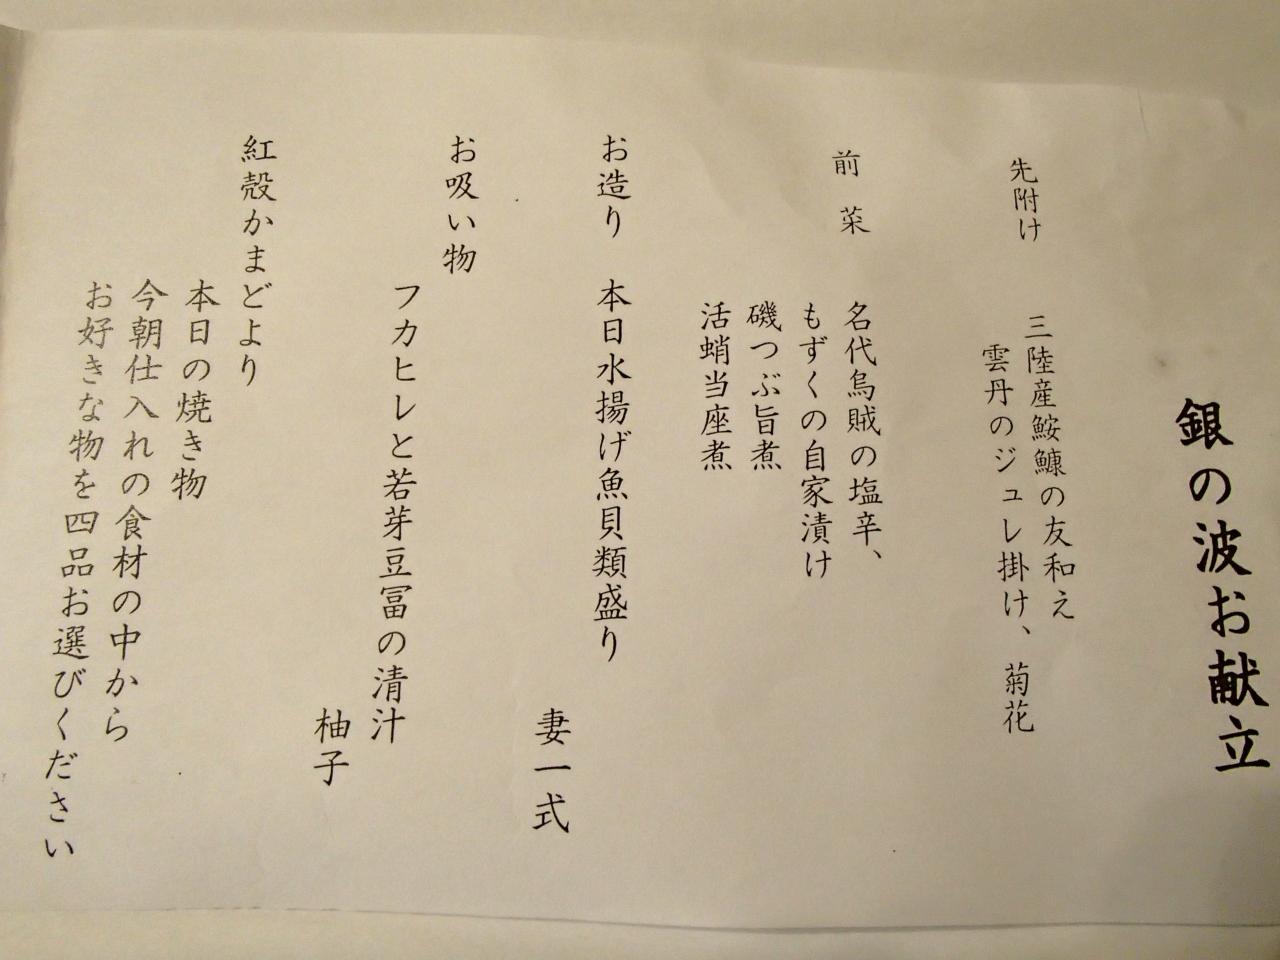 銀の波お献立
先附け 三陸産鮟鱇の友和え
雲丹のジュレ掛け、菊花
前菜 名代烏賊の塩辛、
もずくの自家漬け
磯つぶ旨煮
活蛸当座煮
お造り 本日水揚げ魚貝類盛り
妻一式
お吸い物
フカヒレと若芽豆冨の清汁
柚子
紅殻かまどより
本日の焼き物
今朝仕入れの食材の中から
お好きな物を四品お選びください